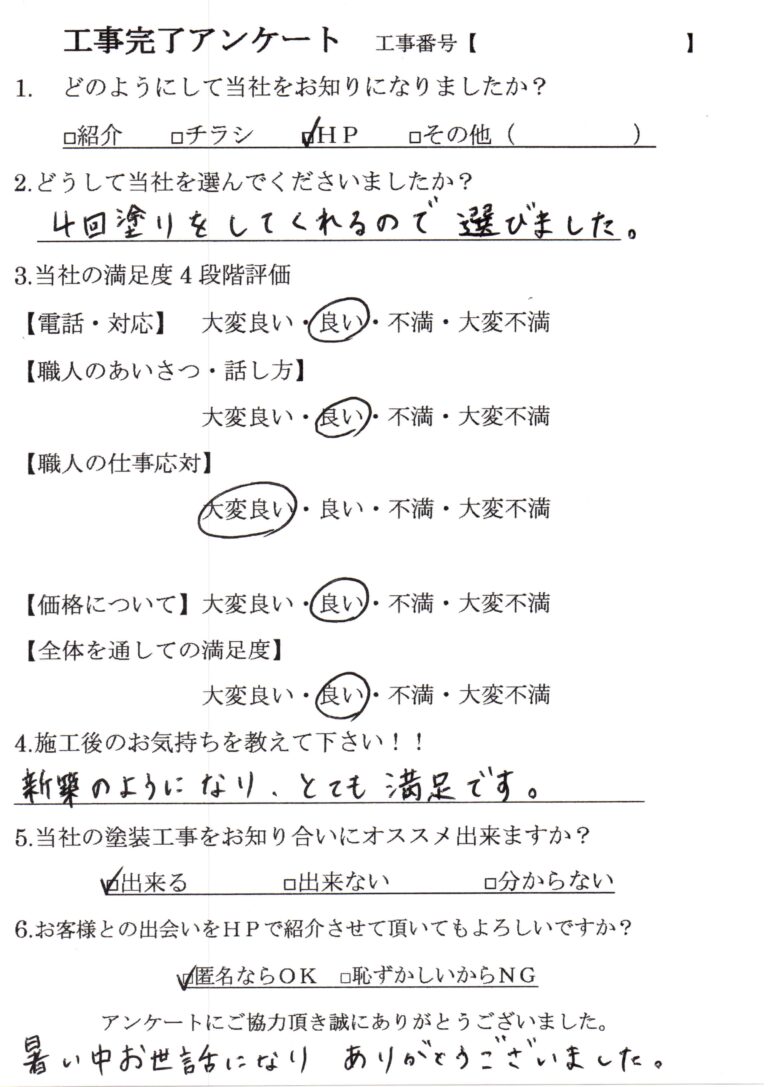 工事完了アンケート 工事番号【 】
1. どのようにして当社をお知りになりましたか?
□紹介 □チラシ ☑HP □その他( )
2.どうして当社を選んでくださいましたか?
4回塗りをしてくれるので選びました。
3.当社の満足度4段階評価
【電話・対応】 大変良い・良い・不満・大変不満
【職人のあいさつ・話し方】
大変良い・良い・不満・大変不満
【職人の仕事応対】
大変良い・良い・不満・大変不満
【価格について】大変良い・良い・不満・大変不満
【全体を通しての満足度】
大変良い・良い・不満・大変不満
4.施工後のお気持ちを教えて下さい!!
新築のようになり、とても満足です。
5.当社の塗装工事をお知り合いにオススメ出来ますか?
☑出来る □出来ない □分からない
6.お客様との出会いをHPで紹介させて頂いてもよろしいですか?
☑匿名ならOK □恥ずかしいからNG
アンケートにご協力頂き誠にありがとうございました。
暑い中お世話になり ありがとうございました。